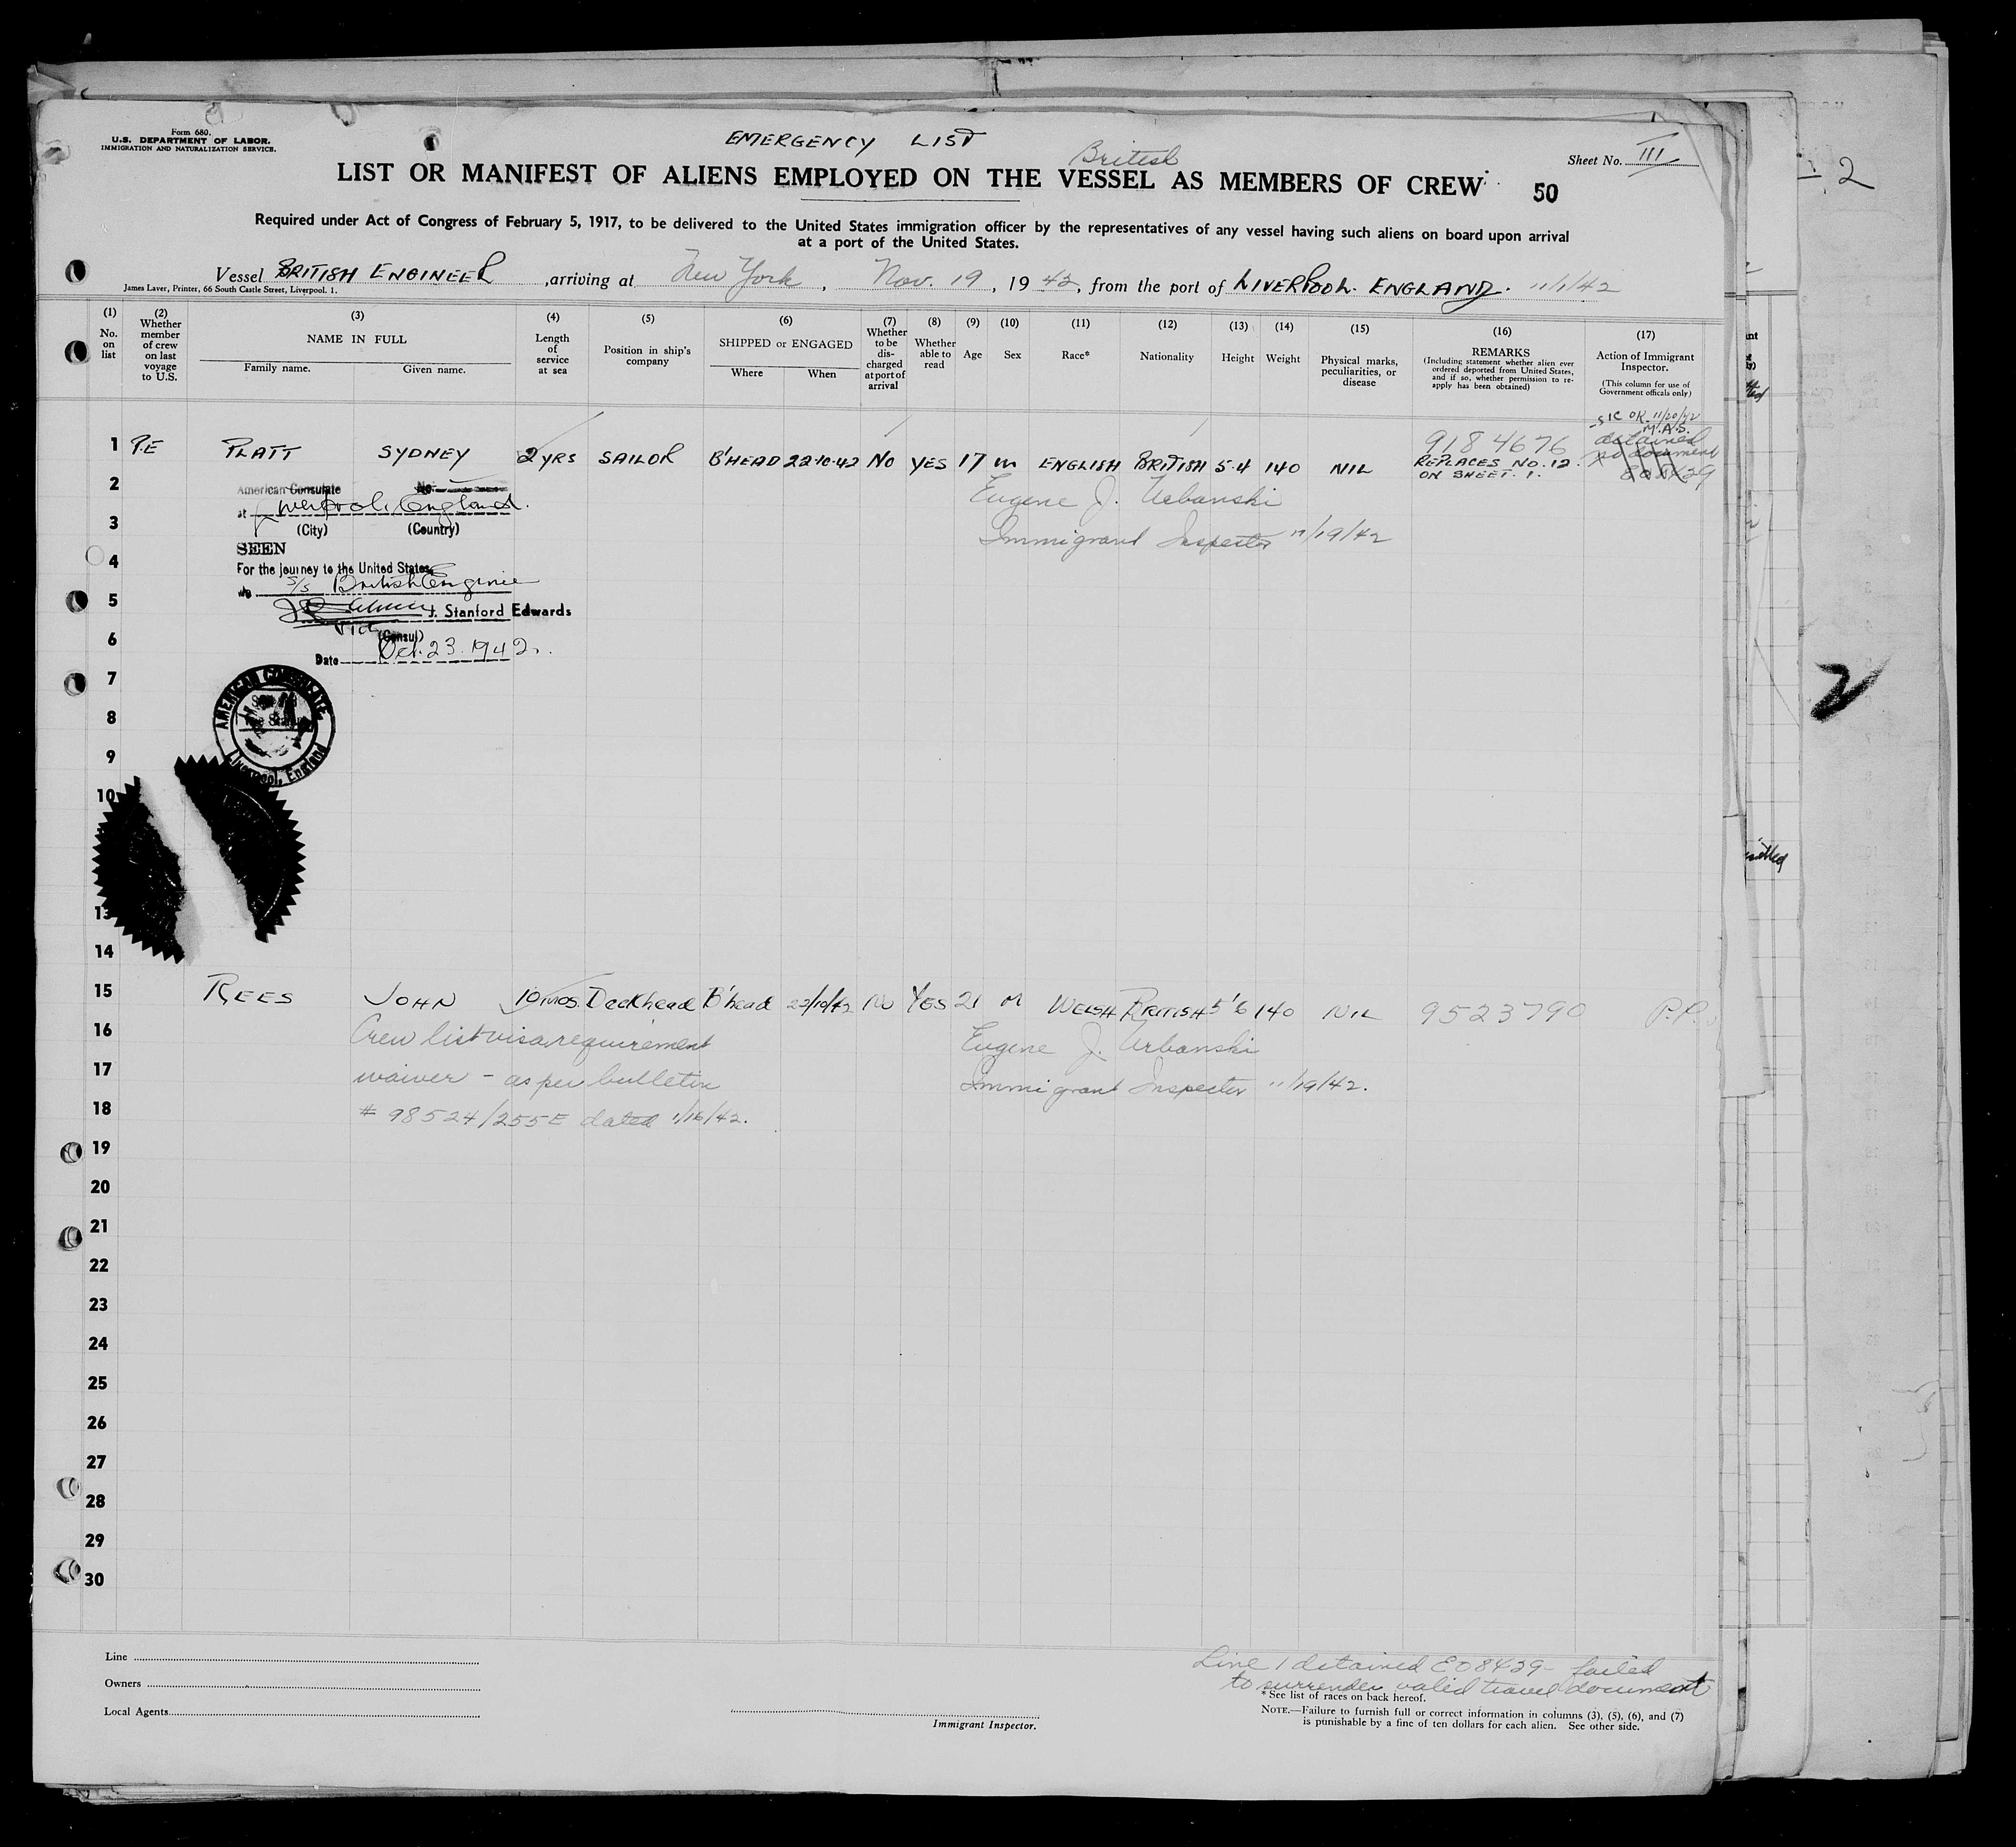 Form 680.
U.S. DEPARTMENT OF LABOR.
IMMIGRATION AND NATURALIZATION SERVICE.
EMERGENCY LIST
British
Sheet No. III
LIST OR MANIFEST OF ALIENS EMPLOYED ON THE VESSEL AS MEMBERS OF CREW
50
Required under Act of Congress of February 5, 1917, to be delivered to the United States immigration officer by the representatives of any vessel having such aliens on board upon arrival
at a port of the United States.
Vessel BRITISH ENGINEER, arriving at New York, Nov. 19, 1942, from the port of LIVERPOOL. ENGLAND. 11/1/42
James Laver, Printer, 66 South Castle Street, Liverpool. 1.
(1) No. on list
(2) Whether member of crew on last voyage to U.S.
(3) NAME IN FULL
Family name. Given name.
(4) Length of service at sea
(5) Position in ship's company
(6) SHIPPED or ENGAGED
Where When
(7) Whether to be discharged at port of arrival
(8) Whether able to read
(9) Age
(10) Sex
(11) Race*
(12) Nationality
(13) Height
(14) Weight
(15) Physical marks, peculiarities, or disease
(16) REMARKS
(Including statement whether alien ever ordered deported from United States, and if so, whether permission to re-apply has been obtained)
(17) Action of Immigrant Inspector.
(This column for use of Government officals only)
OK 11/20/42
M.A.S.
1 P.E PLATT SYDNEY 2 YRS SAILOR B'HEAD 22·10·42 NO YES 17 M ENGLISH BRITISH 5·4 140 NIL 9184676 detained
REPLACES NO. 12. no document
ON SHEET. 1. 8429
2 American Consulate No.
Eugene J. Urbanski
at Liverpool, England.
3 (City) (Country)
Immigrant Inspector 11/19/42
SEEN
4 For the journey to the United States
S/S British Engineer
5 J. Stanford Edwards
6 Vice (Consul)
Date Oct. 23. 1942.
7
AMERICAN CONSULATE
Liverpool, England
8
9
10
13
14
15 REES JOHN 10 mos. Deckhead B'head 22/10/42 NO YES 21 M WELSH BRITISH 5'6 140 NIL 9523790 P.P.
16 Crew list visa requirement Eugene J. Urbanski
17 waiver - as per bulletin Immigrant Inspector 11/19/42.
18 # 98524/255E dated 1/16/42.
19
20
21
22
23
24
25
26
27
28
29
30
Line
Owners
Local Agents
Immigrant Inspector.
Line 1 detained EO8429 - failed
to surrender valid travel document
* See list of races on back hereof.
NOTE.—Failure to furnish full or correct information in columns (3), (5), (6), and (7)
is punishable by a fine of ten dollars for each alien. See other side.
2
2